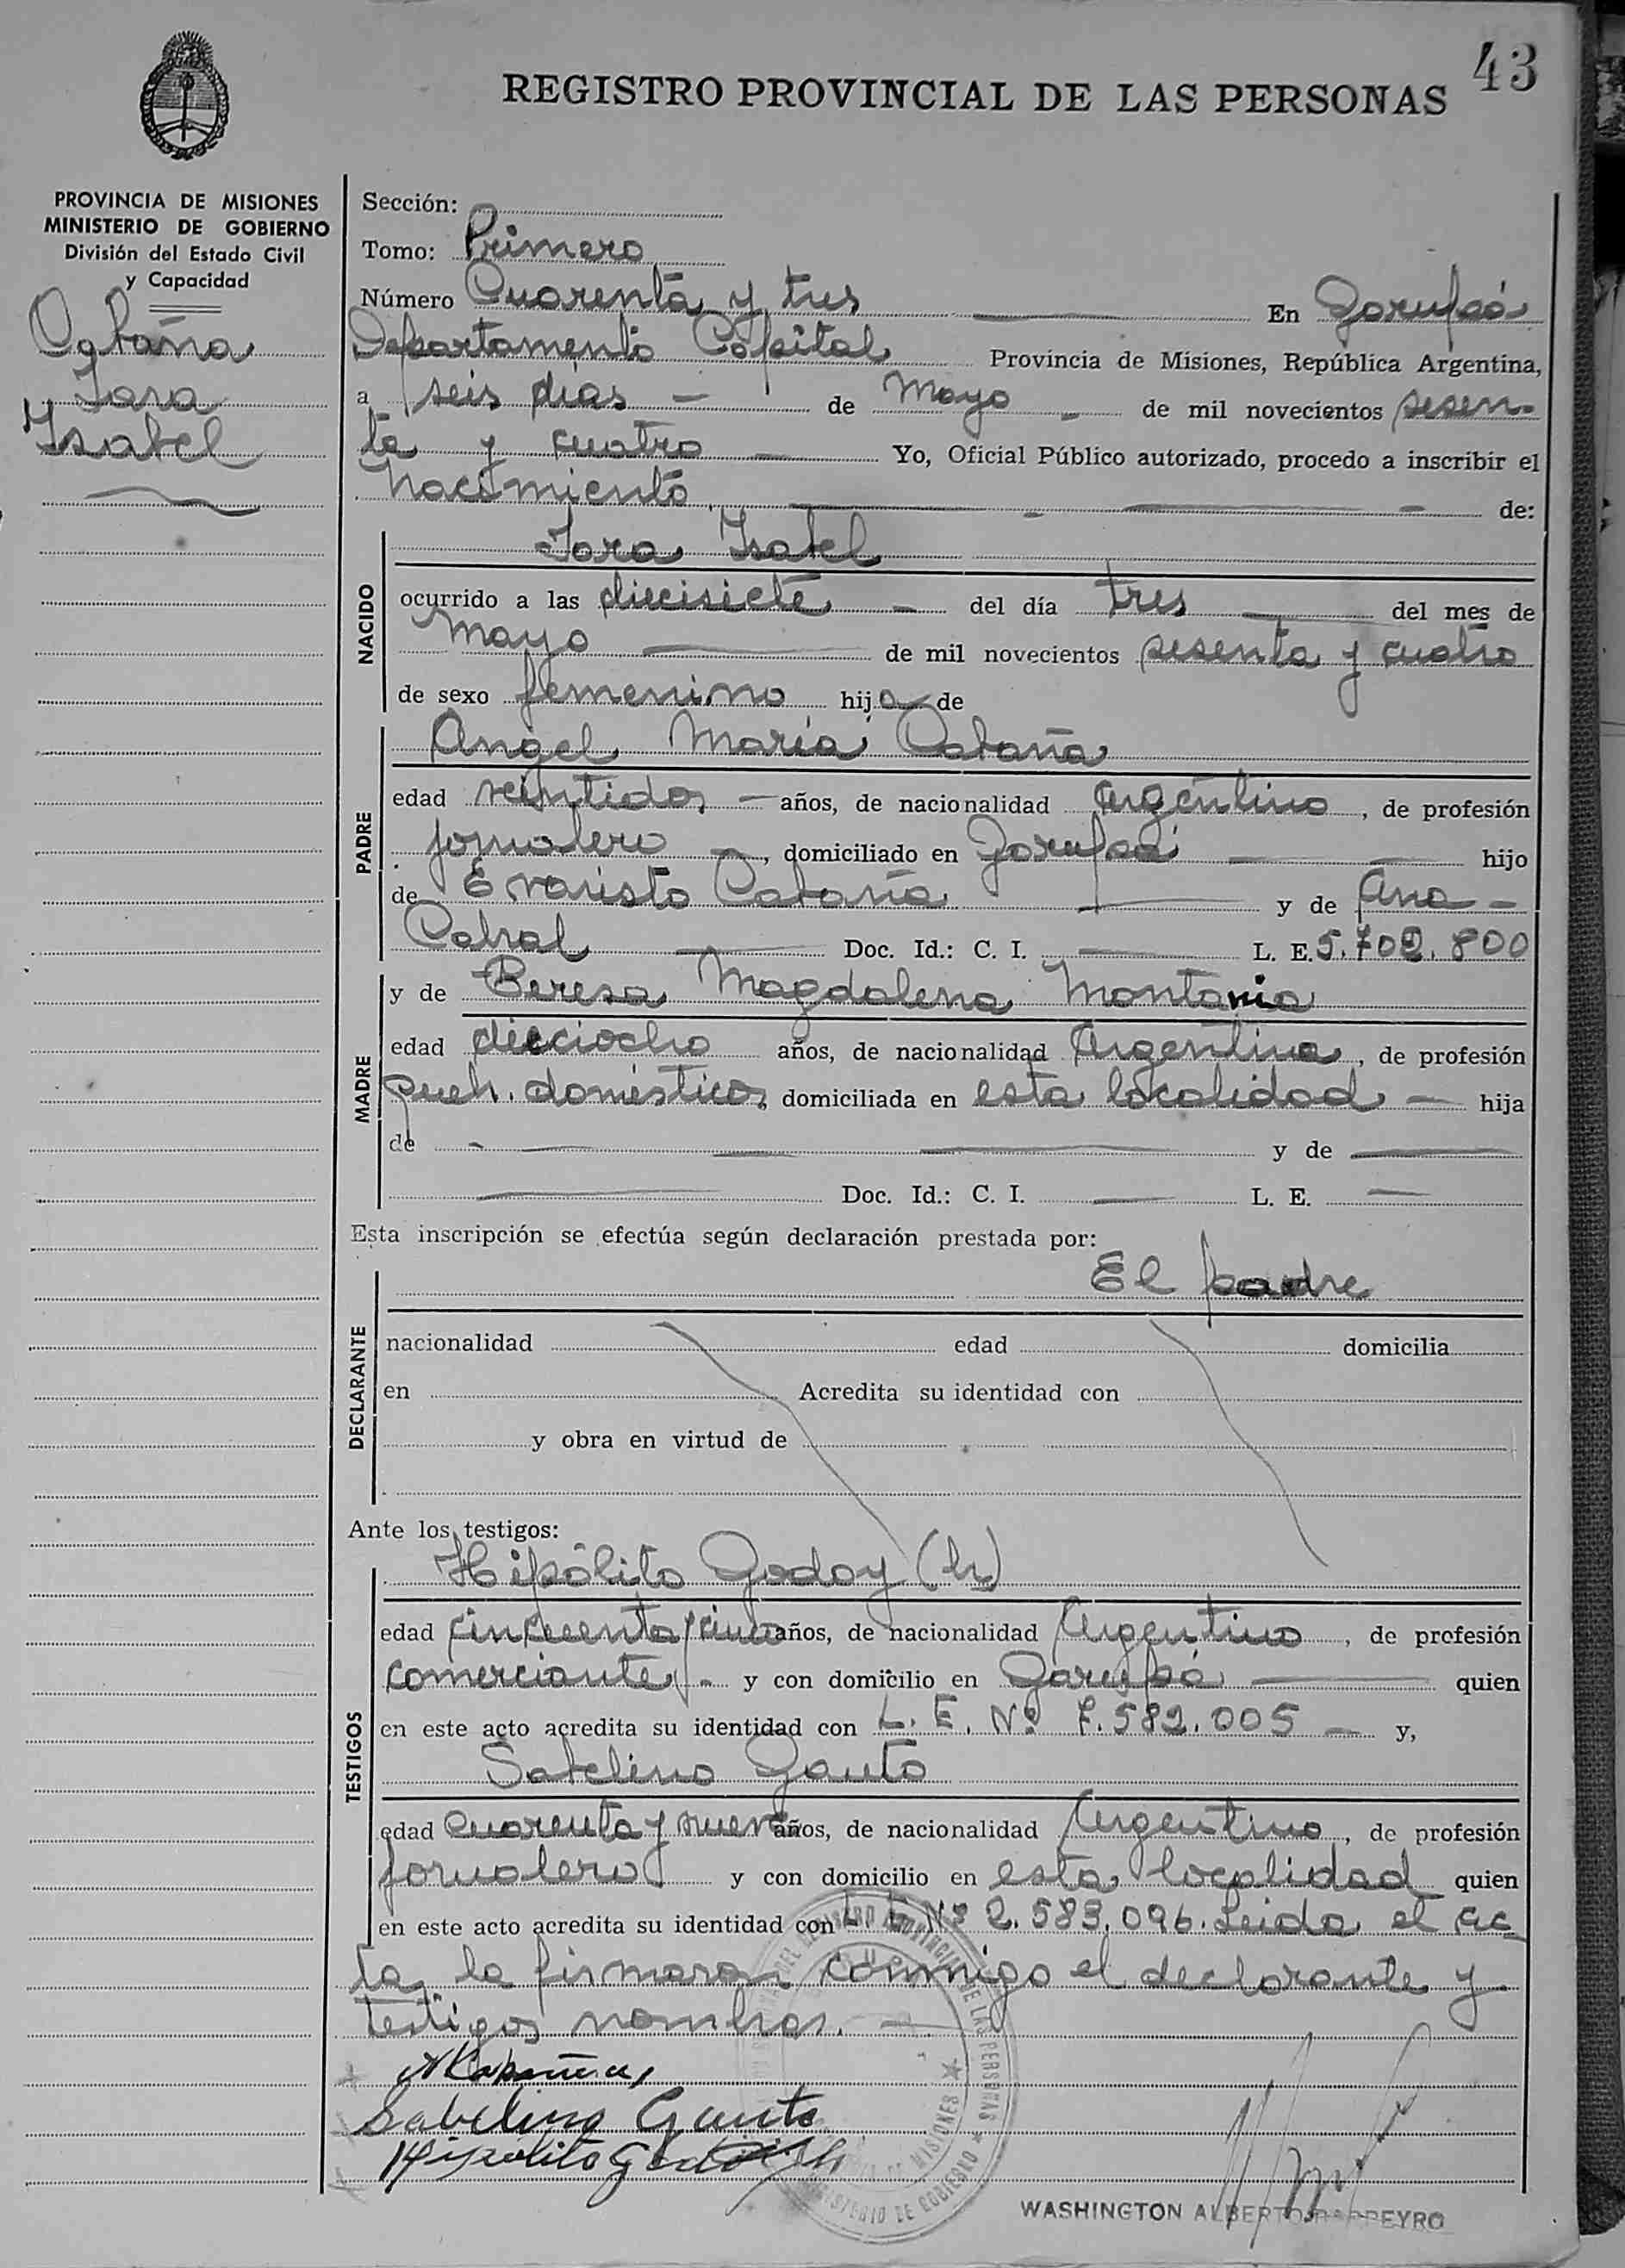 43
REGISTRO PROVINCIAL DE LAS PERSONAS
PROVINCIA DE MISIONES
MINISTERIO DE GOBIERNO
División del Estado Civil
y Capacidad
Cabaña
Sara
Isabel
Sección:
Tomo: Primero
Número Cuarenta y tres En Garupá
Departamento Capital Provincia de Misiones, República Argentina,
a seis días de Mayo de mil novecientos sesen-
ta y cuatro Yo, Oficial Público autorizado, procedo a inscribir el
nacimiento de:
NACIDO
Sara Isabel
ocurrido a las diecisiete del día tres del mes de
mayo de mil novecientos sesenta y cuatro
de sexo femenino hija de
PADRE
Angel María Cabaña
edad veintidos años, de nacionalidad argentino, de profesión
jornalero, domiciliado en Garupá hijo
de Evaristo Cabaña y de Ana
Cabral Doc. Id.: C. I. L. E. 5.702.800
MADRE
y de Beresa Magdalena Montania
edad dieciocho años, de nacionalidad Argentina, de profesión
queh. domésticos, domiciliada en esta localidad hija
de y de
Doc. Id.: C. I. L. E.
Esta inscripción se efectúa según declaración prestada por:
DECLARANTE
El padre
nacionalidad edad domicilia
en Acredita su identidad con
y obra en virtud de
Ante los testigos:
TESTIGOS
Hipólito Godoy (h)
edad cincuenta y cinco años, de nacionalidad Argentino, de profesión
comerciante y con domicilio en Garupá quien
en este acto acredita su identidad con L. E. Nº 7.582.005 y,
Sabelino Gauto
edad cuarenta y nueve años, de nacionalidad Argentino, de profesión
jornalero y con domicilio en esta localidad quien
en este acto acredita su identidad con L. E. Nº 2.583.096. Leida el ac-
ta, la firmaron conmigo el declarante y
testigos nombras.
Cabaña
Sabelino Gauto
Hipólito Godoy h
WASHINGTON ALBERTO